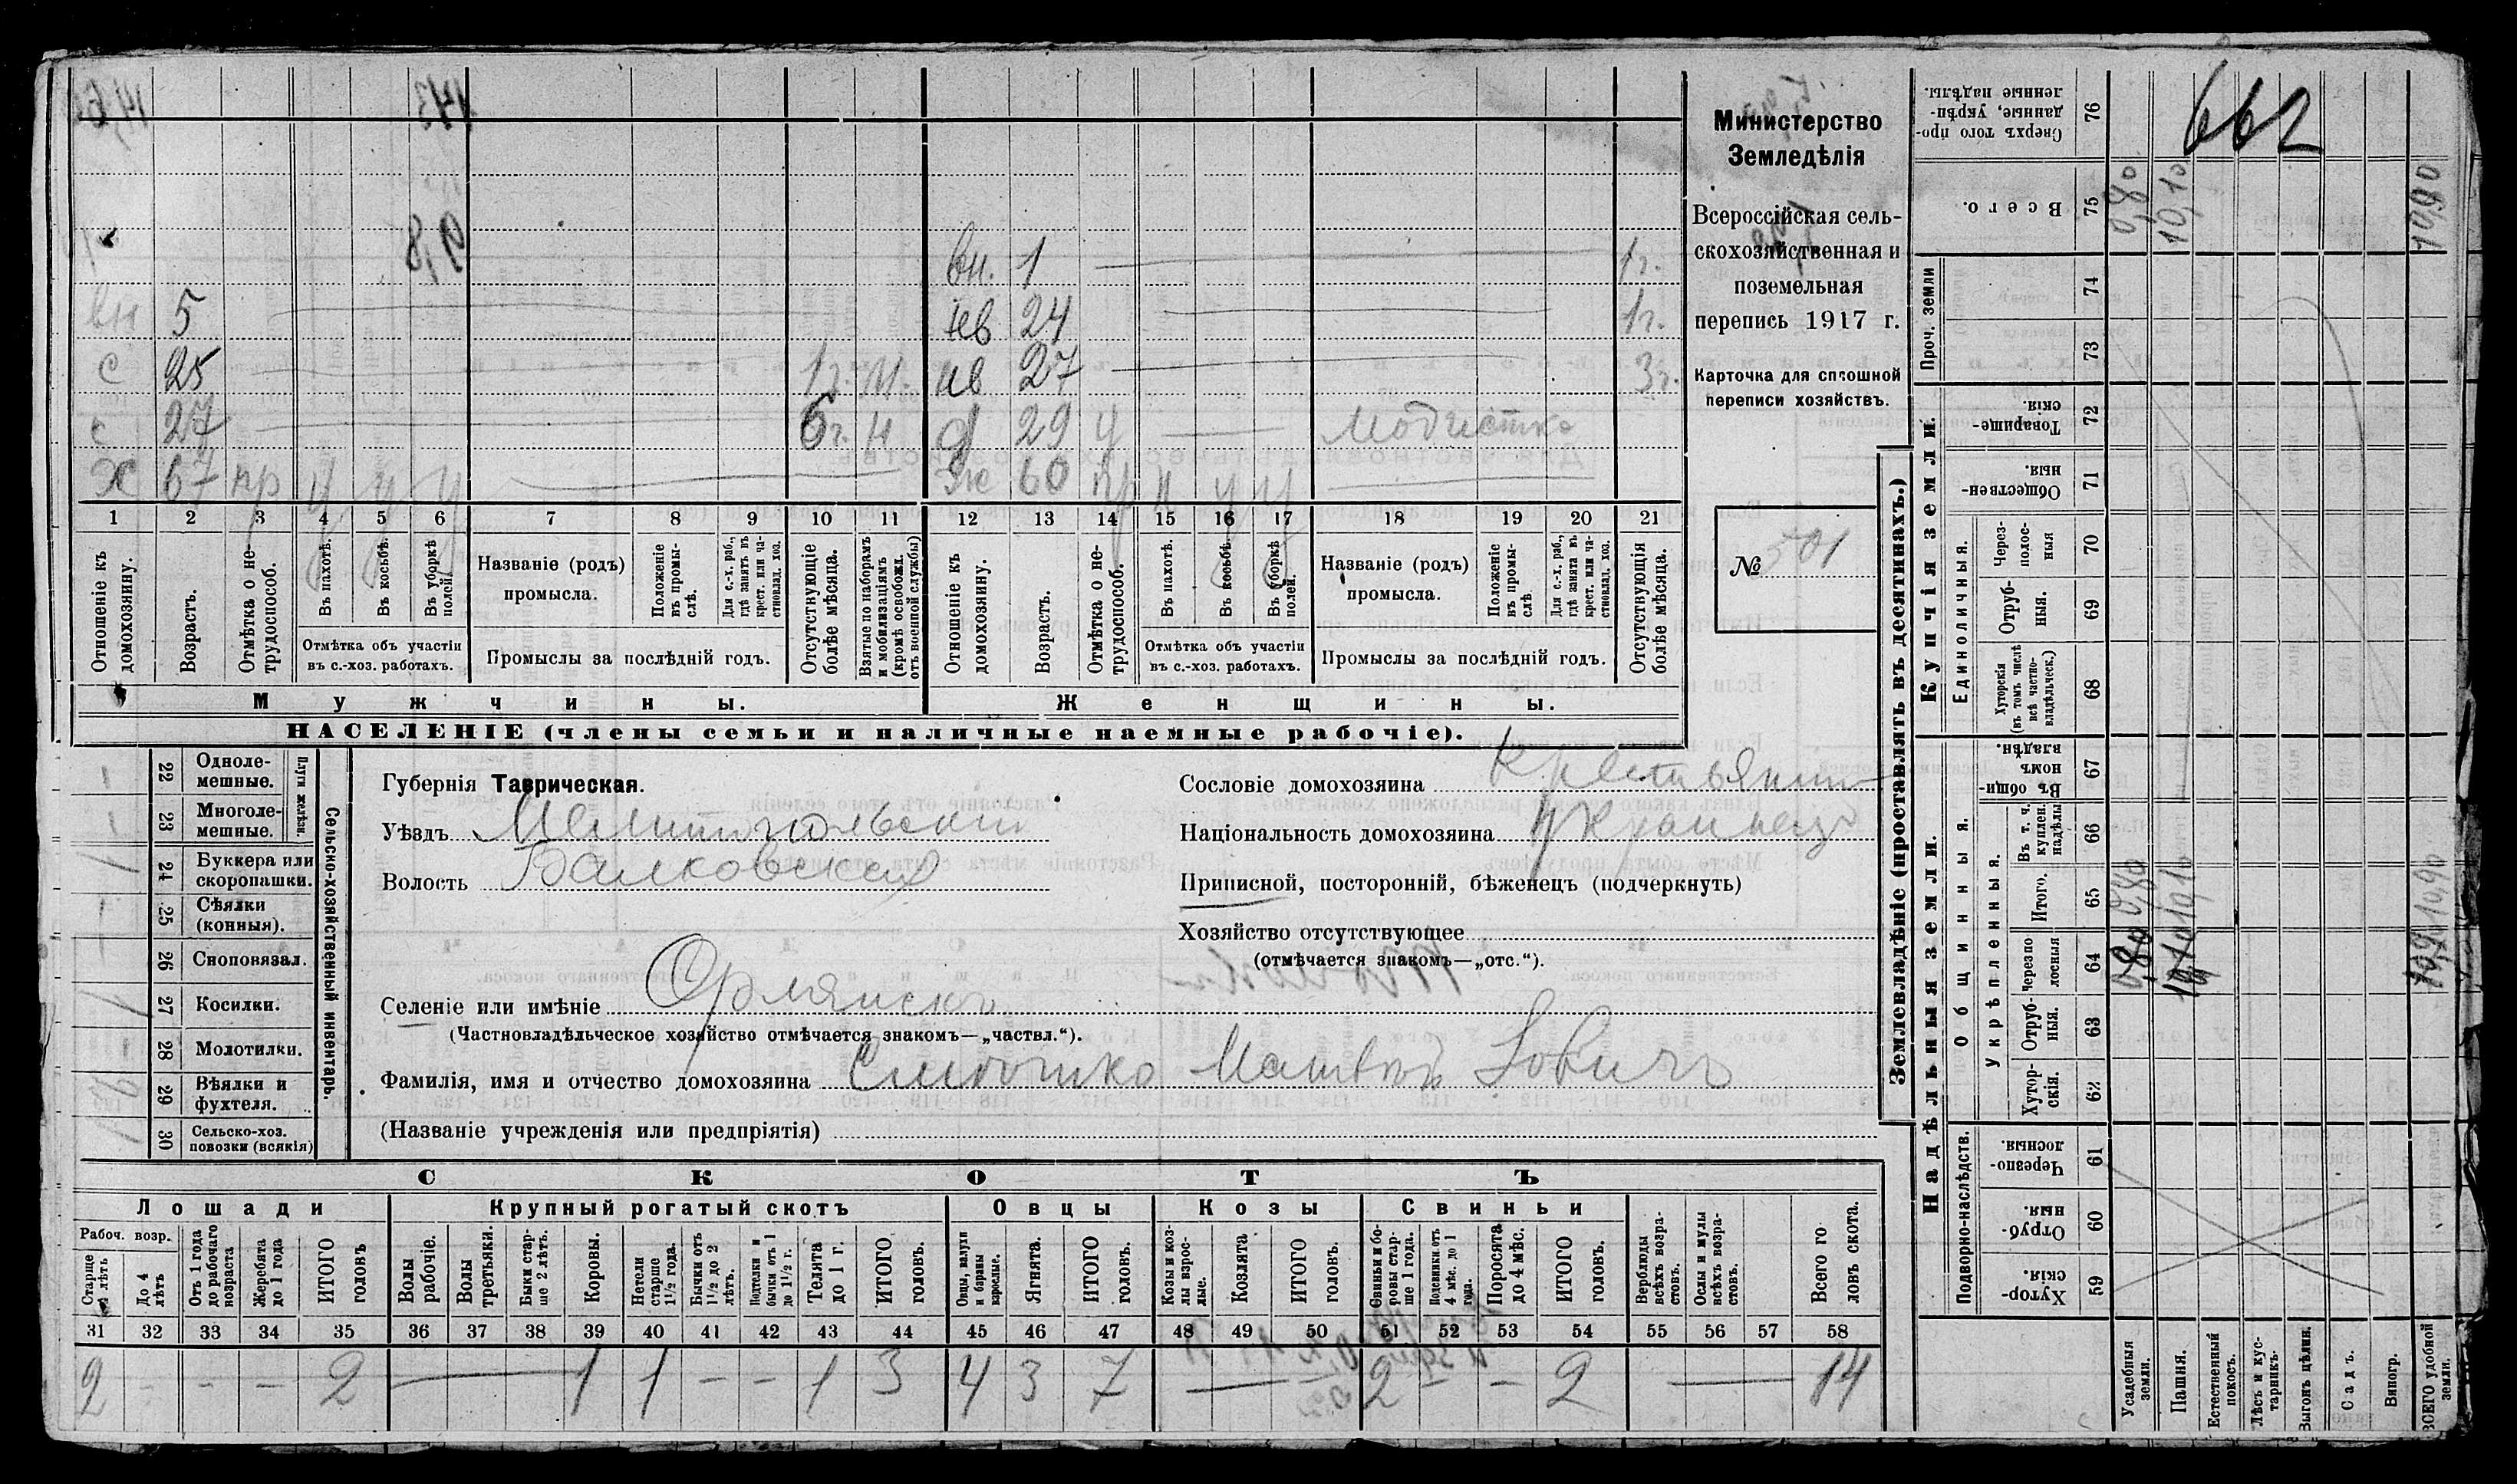 662
Министерство
Земледѣлія
Всероссійская сель-
скохозяйственная и
поземельная
перепись 1917 г.
Карточка для сплошной
переписи хозяйствъ.
№ 501
вн. 1 1г.
вн 5 24 1г.
с 25 1г. 27 3г.
с 27 6г. д 29 у Модистка
Х 67 пр у у у ж 60 у у
1 2 3 4 5 6 7 8 9 10 11 12 13 14 15 16 17 18 19 20 21
Отношеніе къ домохозяину.
Возрастъ.
Отмѣтка о не-трудоспособ.
Въ пахотѣ.
Въ косьбѣ.
Въ уборкѣ полей.
Отмѣтка объ участіи
въ с.-хоз. работахъ.
Названіе (родъ)
промысла.
Положеніе въ промы-слѣ.
Для с.-х. раб., гдѣ занятъ въ крест. или ча-стновлад. хоз.
Промыслы за послѣдній годъ.
Отсутствующіе болѣе мѣсяца.
Взятые по наборамъ и мобилизаціямъ (кромѣ освобожд. отъ военной службы)
Отношеніе къ домохозяину.
Возрастъ.
Отмѣтка о не-трудоспособ.
Въ пахотѣ.
Въ косьбѣ.
Въ уборкѣ полей.
Отмѣтка объ участіи
въ с.-хоз. работахъ.
Названіе (родъ)
промысла.
Положеніе въ промы-слѣ
Для с.-х. раб., гдѣ занята въ крест. или ча-стновлад. хоз.
Промыслы за послѣдній годъ.
Отсутствующія болѣе мѣсяца.
Мужчины.
Женщины.
НАСЕЛЕНІЕ (члены семьи и наличные наемные рабочіе).
Сельско-хозяйственный инвентарь.
Плуги желѣзн.
22 Одноле-мешные.
23 Многоле-мешные.
24 Буккера или скоропашки.
25 Сѣялки (конныя).
26 Сноповязал.
27 Косилки.
28 Молотилки.
29 Вѣялки и фухтеля.
30 Сельско-хоз. повозки (всякія)
Губернія Таврическая.
Уѣздъ Мелитопольскій
Волость Балковская
Сословіе домохозяина Крестьянин
Національность домохозяина Украинец
Приписной, посторонній, бѣженецъ (подчеркнуть)
Хозяйство отсутствующее
(отмѣчается знакомъ—„отс.“).
Селеніе или имѣніе Орлянск
(Частновладѣльческое хозяйство отмѣчается знакомъ—„частвл.“).
Фамилія, имя и отчество домохозяина Матвѣй
(Названіе учрежденія или предпріятія)
СКОТЪ
Лошади Крупный рогатый скотъ Овцы Козы Свиньи
Рабоч. возр.
Старше 4 лѣтъ
До 4 лѣтъ
Отъ 1 года до рабочаго возраста
Жеребята до 1 года
ИТОГО головъ
Волы рабочіе.
Волы третьяки.
Быки стар-ше 2 лѣтъ.
Коровы.
Нетели старше 1½ года.
Бычки отъ 1½ до 2 лѣтъ.
Подтелки и бычки отъ 1 до 1½ г.
Телята до 1 г.
ИТОГО головъ.
Овцы, валухи и бараны взрослые.
Ягнята.
ИТОГО головъ.
Козы и коз-лы взрос-лые.
Козлята
ИТОГО головъ.
Свиньи и бо-ровы стар-ше 1 года.
Подсвинки отъ 4 мѣс. до 1 года.
Поросята до 4 мѣс.
ИТОГО головъ.
Верблюды всѣхъ возра-стовъ.
Ослы и мулы всѣхъ возра-стовъ.
Всего го-ловъ скота.
31 32 33 34 35 36 37 38 39 40 41 42 43 44 45 46 47 48 49 50 51 52 53 54 55 56 57 58
2 - - - 2 — 1 1 - - 1 3 4 3 7 — 2 - - 2 — 14
Землевладѣніе (проставлять въ десятинахъ.)
Надѣльныя земли.
Купчія земли.
Проч. земли
Подворно-наслѣдств.
Общинныя.
Укрѣпленныя.
Единоличныя.
Сверхъ того про-данные, укрѣп-ленные надѣлы. 76
Всего. 75 0,80 10,10 10,90
74
73
Товарище-скія. 72
Обществен-ныя 71
Через-полос-ныя 70
Отруб-ныя. 69
Хуторскія (въ томъ числѣ всѣ частно-владѣльческ.) 68
Въ общи-номъ владѣн. 67
Въ т. ч. куплен. надѣлы 66
Итого. 65 0,80 10,10 10,90
Черезпо-лосныя 64 0,80 10,10 10,90
Отруб-ныя. 63
Хутор-скія. 62
Черезпо-лосныя 61
Отруб-ныя. 60
Хутор-скія. 59
Усадебныя земли.
Пашня.
Естественный покосъ.
Лѣсъ и кус-тарникъ.
Выгонъ цѣлин.
Садъ.
Виногр.
ВСЕГО удобной земли.